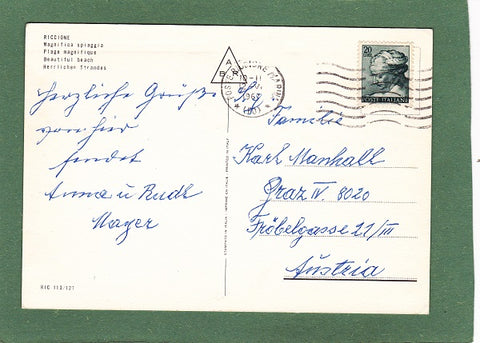 RICCIONE
Magnifica spiaggia
Plage magnifique
Beautiful beach
Herrlicher Strandes
herzliche Grüße
von hier
sendet
Anna u Rudi
Mayer
20
POSTE ITALIANE
Familie
Karl Manhall
Graz IV. 8020
Fröbelgasse 22/III
Austria
RIC 110/121